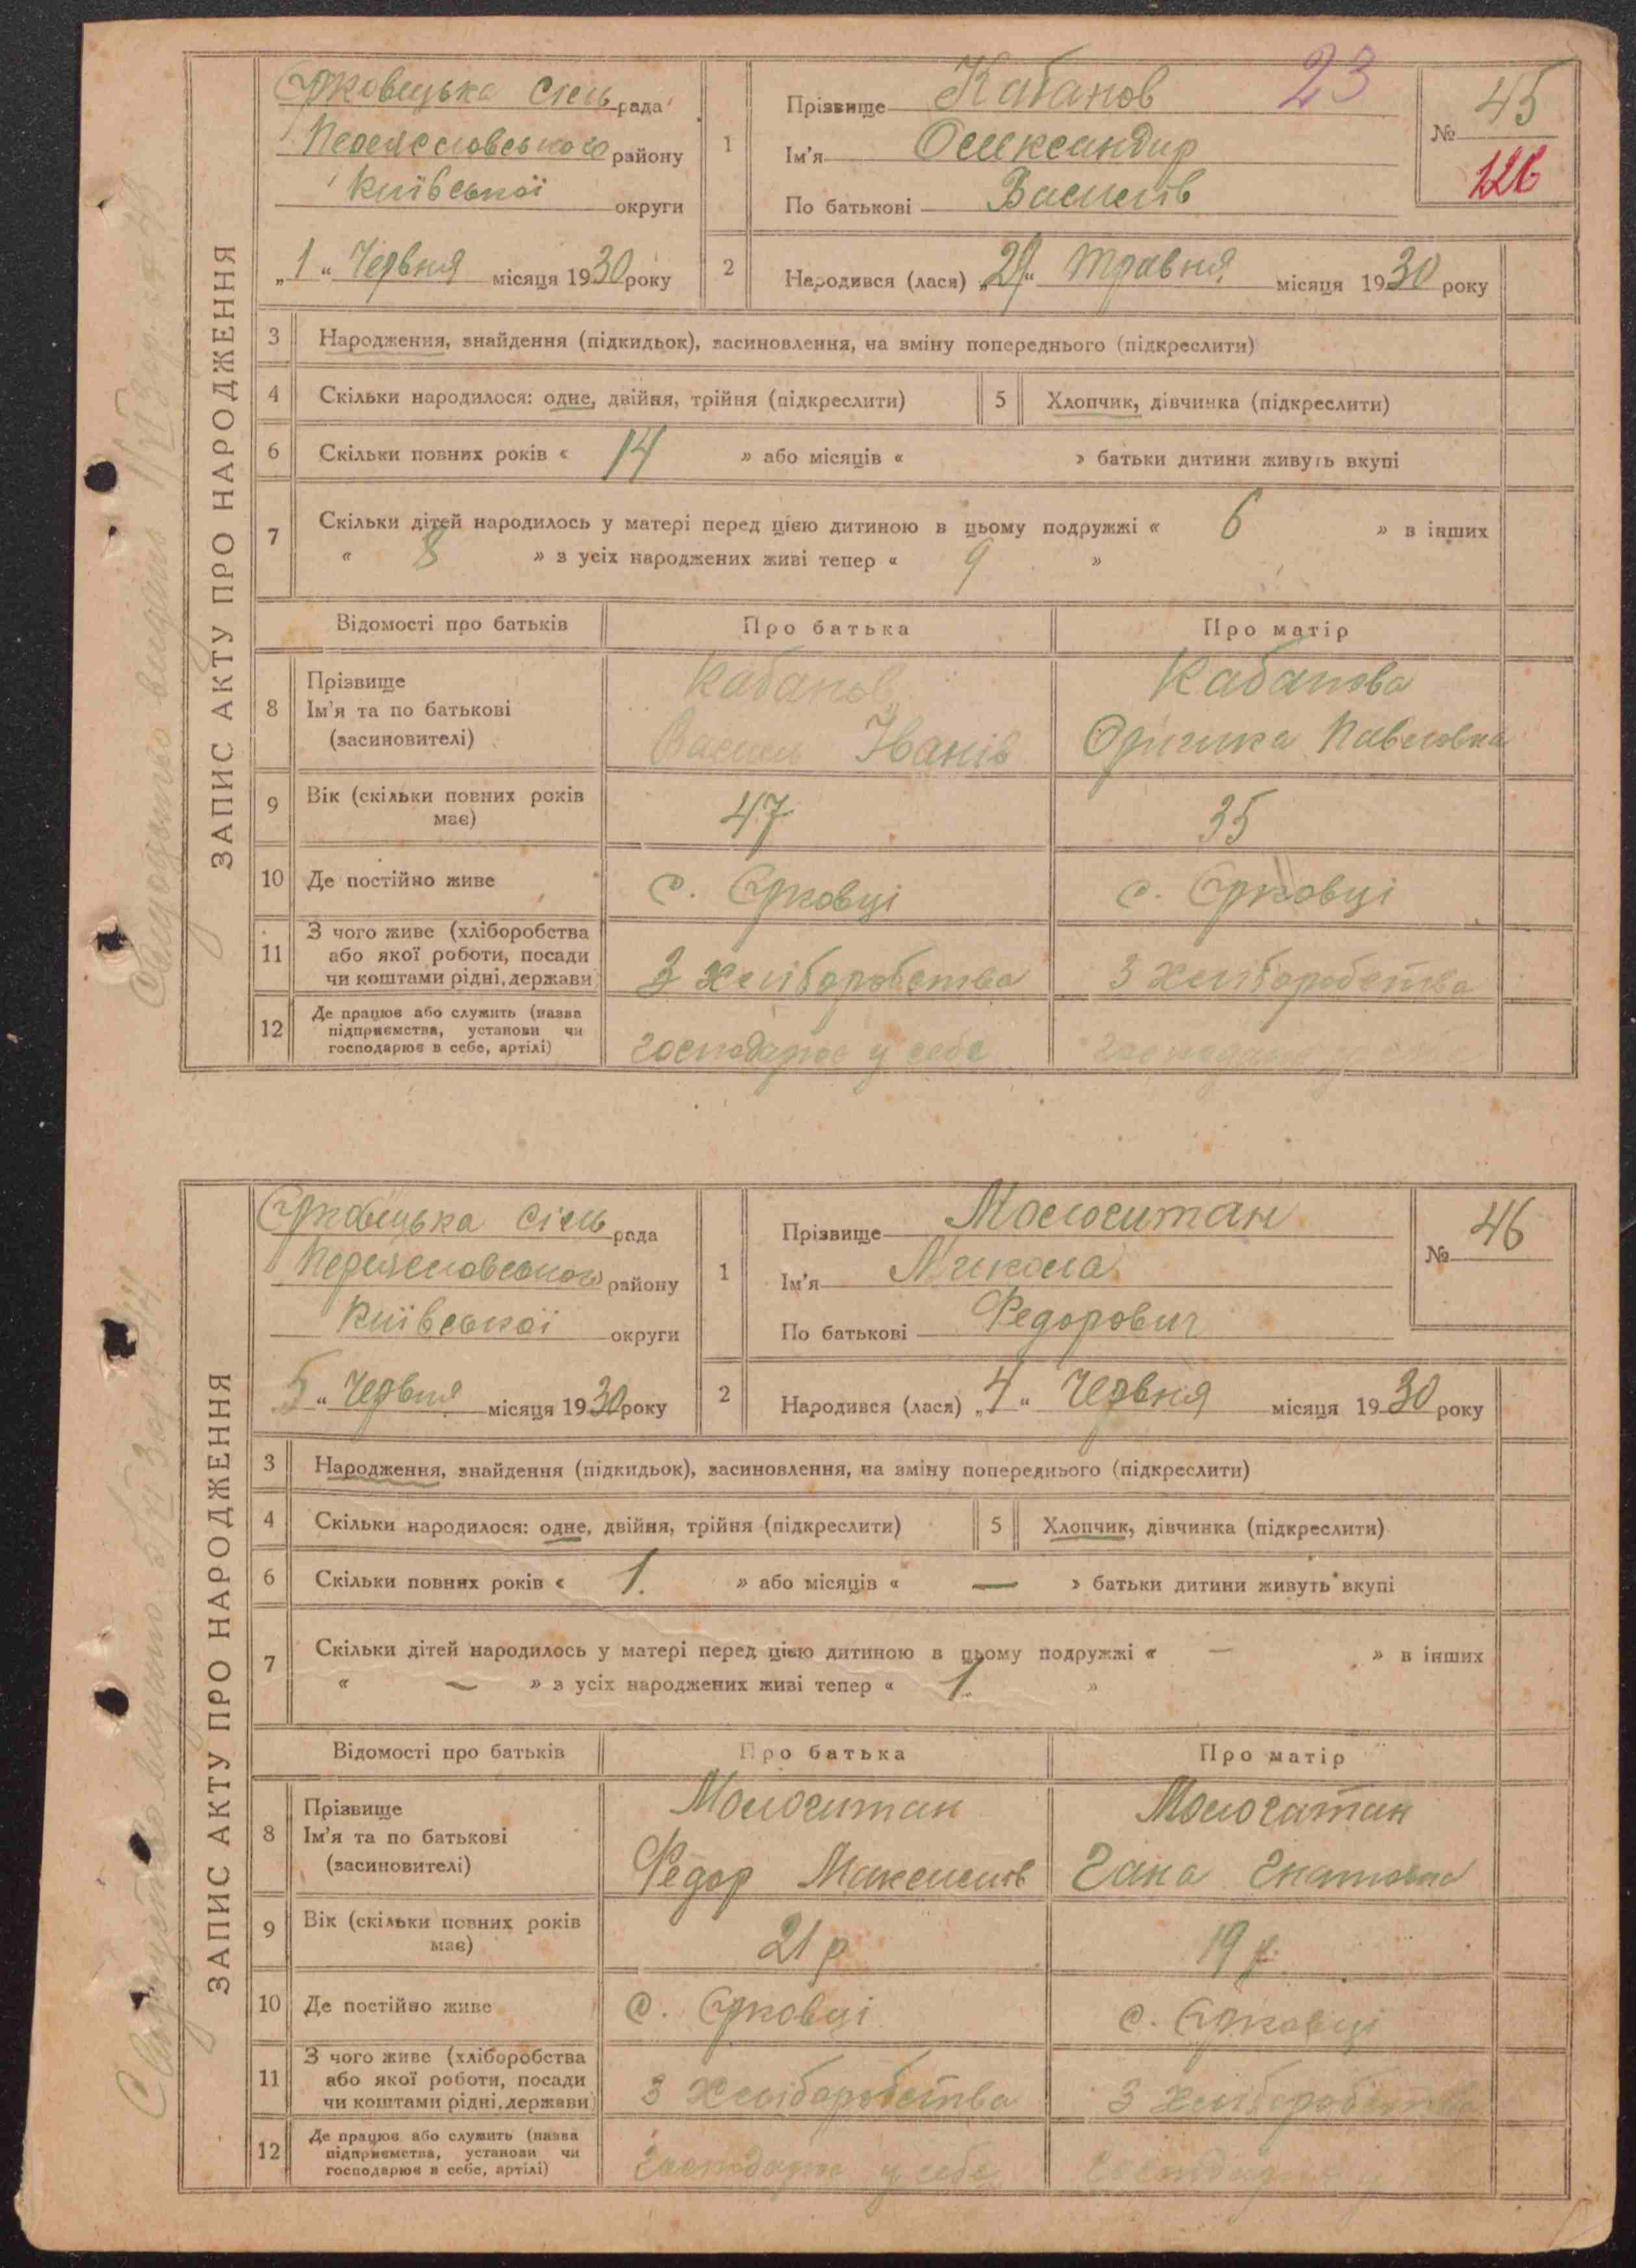 ЗАПИС АКТУ ПРО НАРОДЖЕННЯ
Єрковецька сіль рада
Переяславського району
Київської округи
„1“ Червня місяця 1930 року
23
1 Прізвище Кабанов
Ім'я Олександир
По батькові Василів
№ 45
126
2 Народився (лася) „29“ травня місяця 1930 року
3 Народження, знайдення (підкидьок), засиновлення, на зміну попереднього (підкреслити)
4 Скільки народилося: одне, двійня, трійня (підкреслити) 5 Хлопчик, дівчинка (підкреслити)
6 Скільки повних років « 14 » або місяців « » батьки дитини живуть вкупі
7 Скільки дітей народилось у матері перед цією дитиною в цьому подружжі « 6 » в інших
« 8 » з усіх народжених живі тепер « 9 »
Відомості про батьків Про батька Про матір
8 Прізвище Ім'я та по батькові (засиновителі)
Кабанов Кабанова
Василь Іванів Оришка Павловна
9 Вік (скільки повних років має) 47 35
10 Де постійно живе с. Єрковці с. Єрковці
11 З чого живе (хліборобства або якої роботи, посади чи коштами рідні, держави)
З хліборобства З хліборобства
12 Де працює або служить (назва підприємства, установи чи господарює в себе, артілі)
господарює у себе
ЗАПИС АКТУ ПРО НАРОДЖЕННЯ
Єрковецька сіль рада
Переяславського району
Київської округи
5 “ Червня місяця 1930 року
1 Прізвище Молоситан
Ім'я Микола
По батькові Федорович
№ 46
2 Народився (лася) „4“ Червня місяця 1930 року
3 Народження, знайдення (підкидьок), засиновлення, на зміну попереднього (підкреслити)
4 Скільки народилося: одне, двійня, трійня (підкреслити) 5 Хлопчик, дівчинка (підкреслити)
6 Скільки повних років « 1. » або місяців « — » батьки дитини живуть вкупі
7 Скільки дітей народилось у матері перед цією дитиною в цьому подружжі « — » в інших
« — » з усіх народжених живі тепер « 1. »
Відомості про батьків Про батька Про матір
8 Прізвище Ім'я та по батькові (засиновителі)
Федор Максимів Гана Гнатовна
9 Вік (скільки повних років має) 21 р 19 р.
10 Де постійно живе с. Єрковці с. Єрковці
11 З чого живе (хліборобства або якої роботи, посади чи коштами рідні, держави)
З хліборобства З хліборобства
12 Де працює або служить (назва підприємства, установи чи господарює в себе, артілі)
господарює у себе